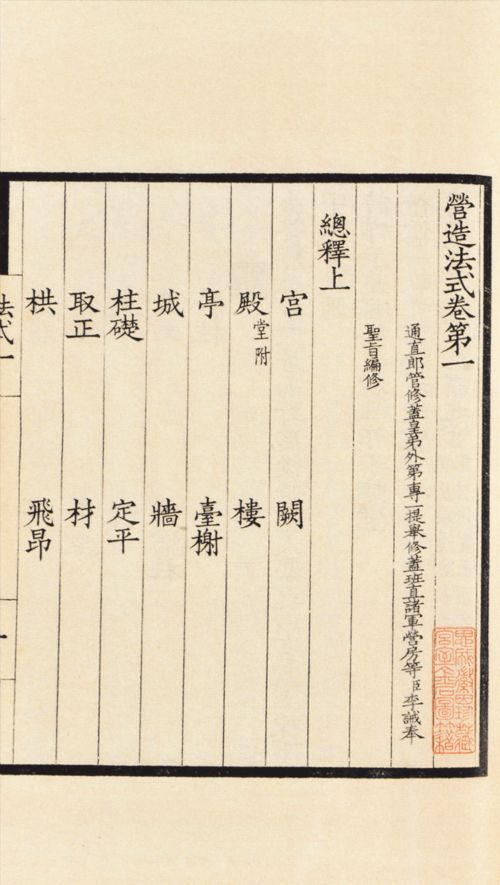 營造法式卷第一
通直郎管修蓋皇弟外第專一提舉修蓋班直諸軍營房等臣李誡奉
聖旨編修
總釋上
宮 闕
殿堂附 樓
亭 臺榭
城 牆
柱礎 定平
取正 材
栱 飛昂
法式一